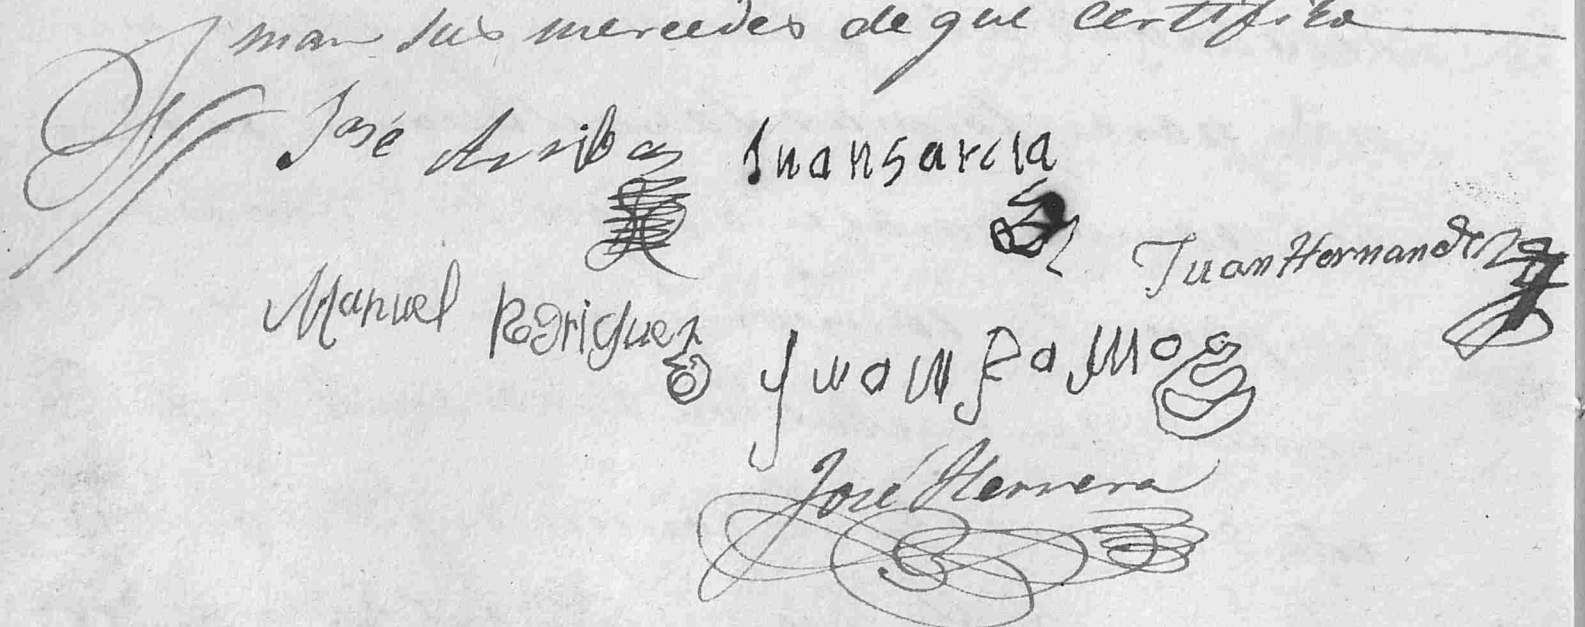 man sus mercedes de que certifico
José Arribas Juan Garcia
Juan Hernandez
Manuel Rodriguez Juan Ramos
José Herrera